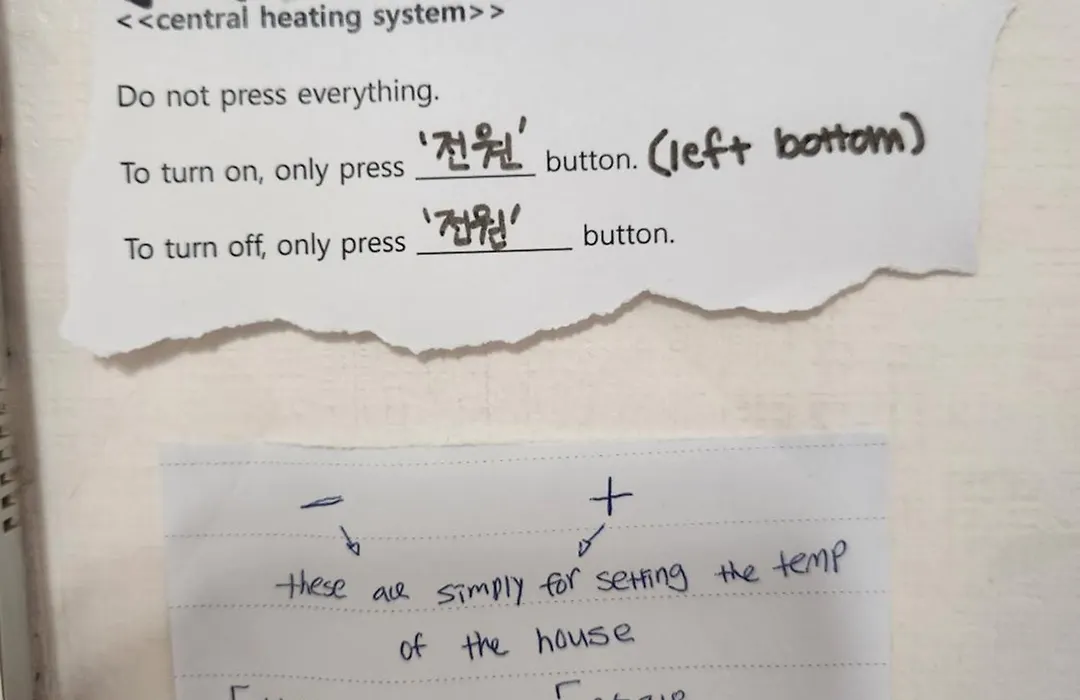 <<central heating system>>
Do not press everything.
To turn on, only press '전원' button. (left bottom)
To turn off, only press '전원' button.
− +
these are simply for setting the temp
of the house